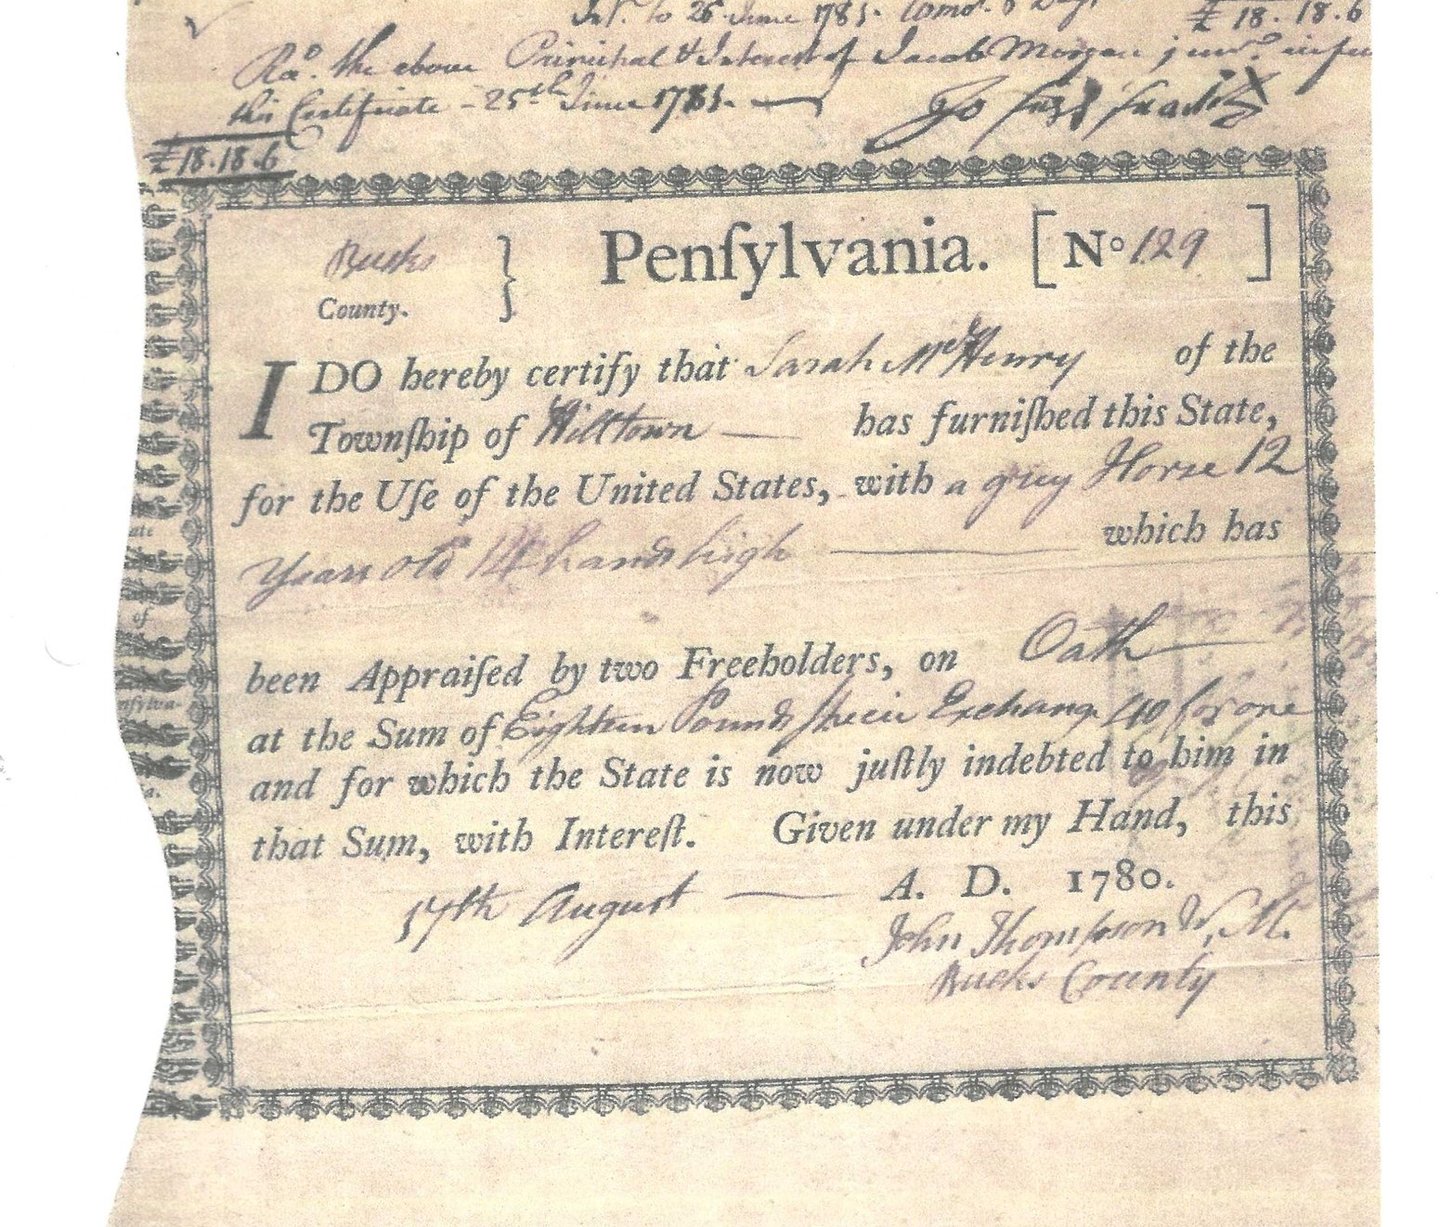 Int. to 26 June 1781. 10 mo. 8 Days £ 18.18.6
Recd. the above Principal & Interest of Jacob Morgan junr. in full
this Certificate - 25th June 1781.
£18.18.6
Bucks
County.
Penſylvania. [No 129 ]
I DO hereby certify that Sarah McHenry of the
Townſhip of Hilltown has furniſhed this State,
for the Uſe of the United States, with a grey Horse 12
Years old 14 hands high which has
been Appraiſed by two Freeholders, on Oath
at the Sum of Eighteen Pounds Specie Exchange 40 for one
and for which the State is now juſtly indebted to him in
that Sum, with Intereſt. Given under my Hand, this
17th August A. D. 1780.
John Thompson W, M.
Bucks County
ate
of
nſylva-
a.